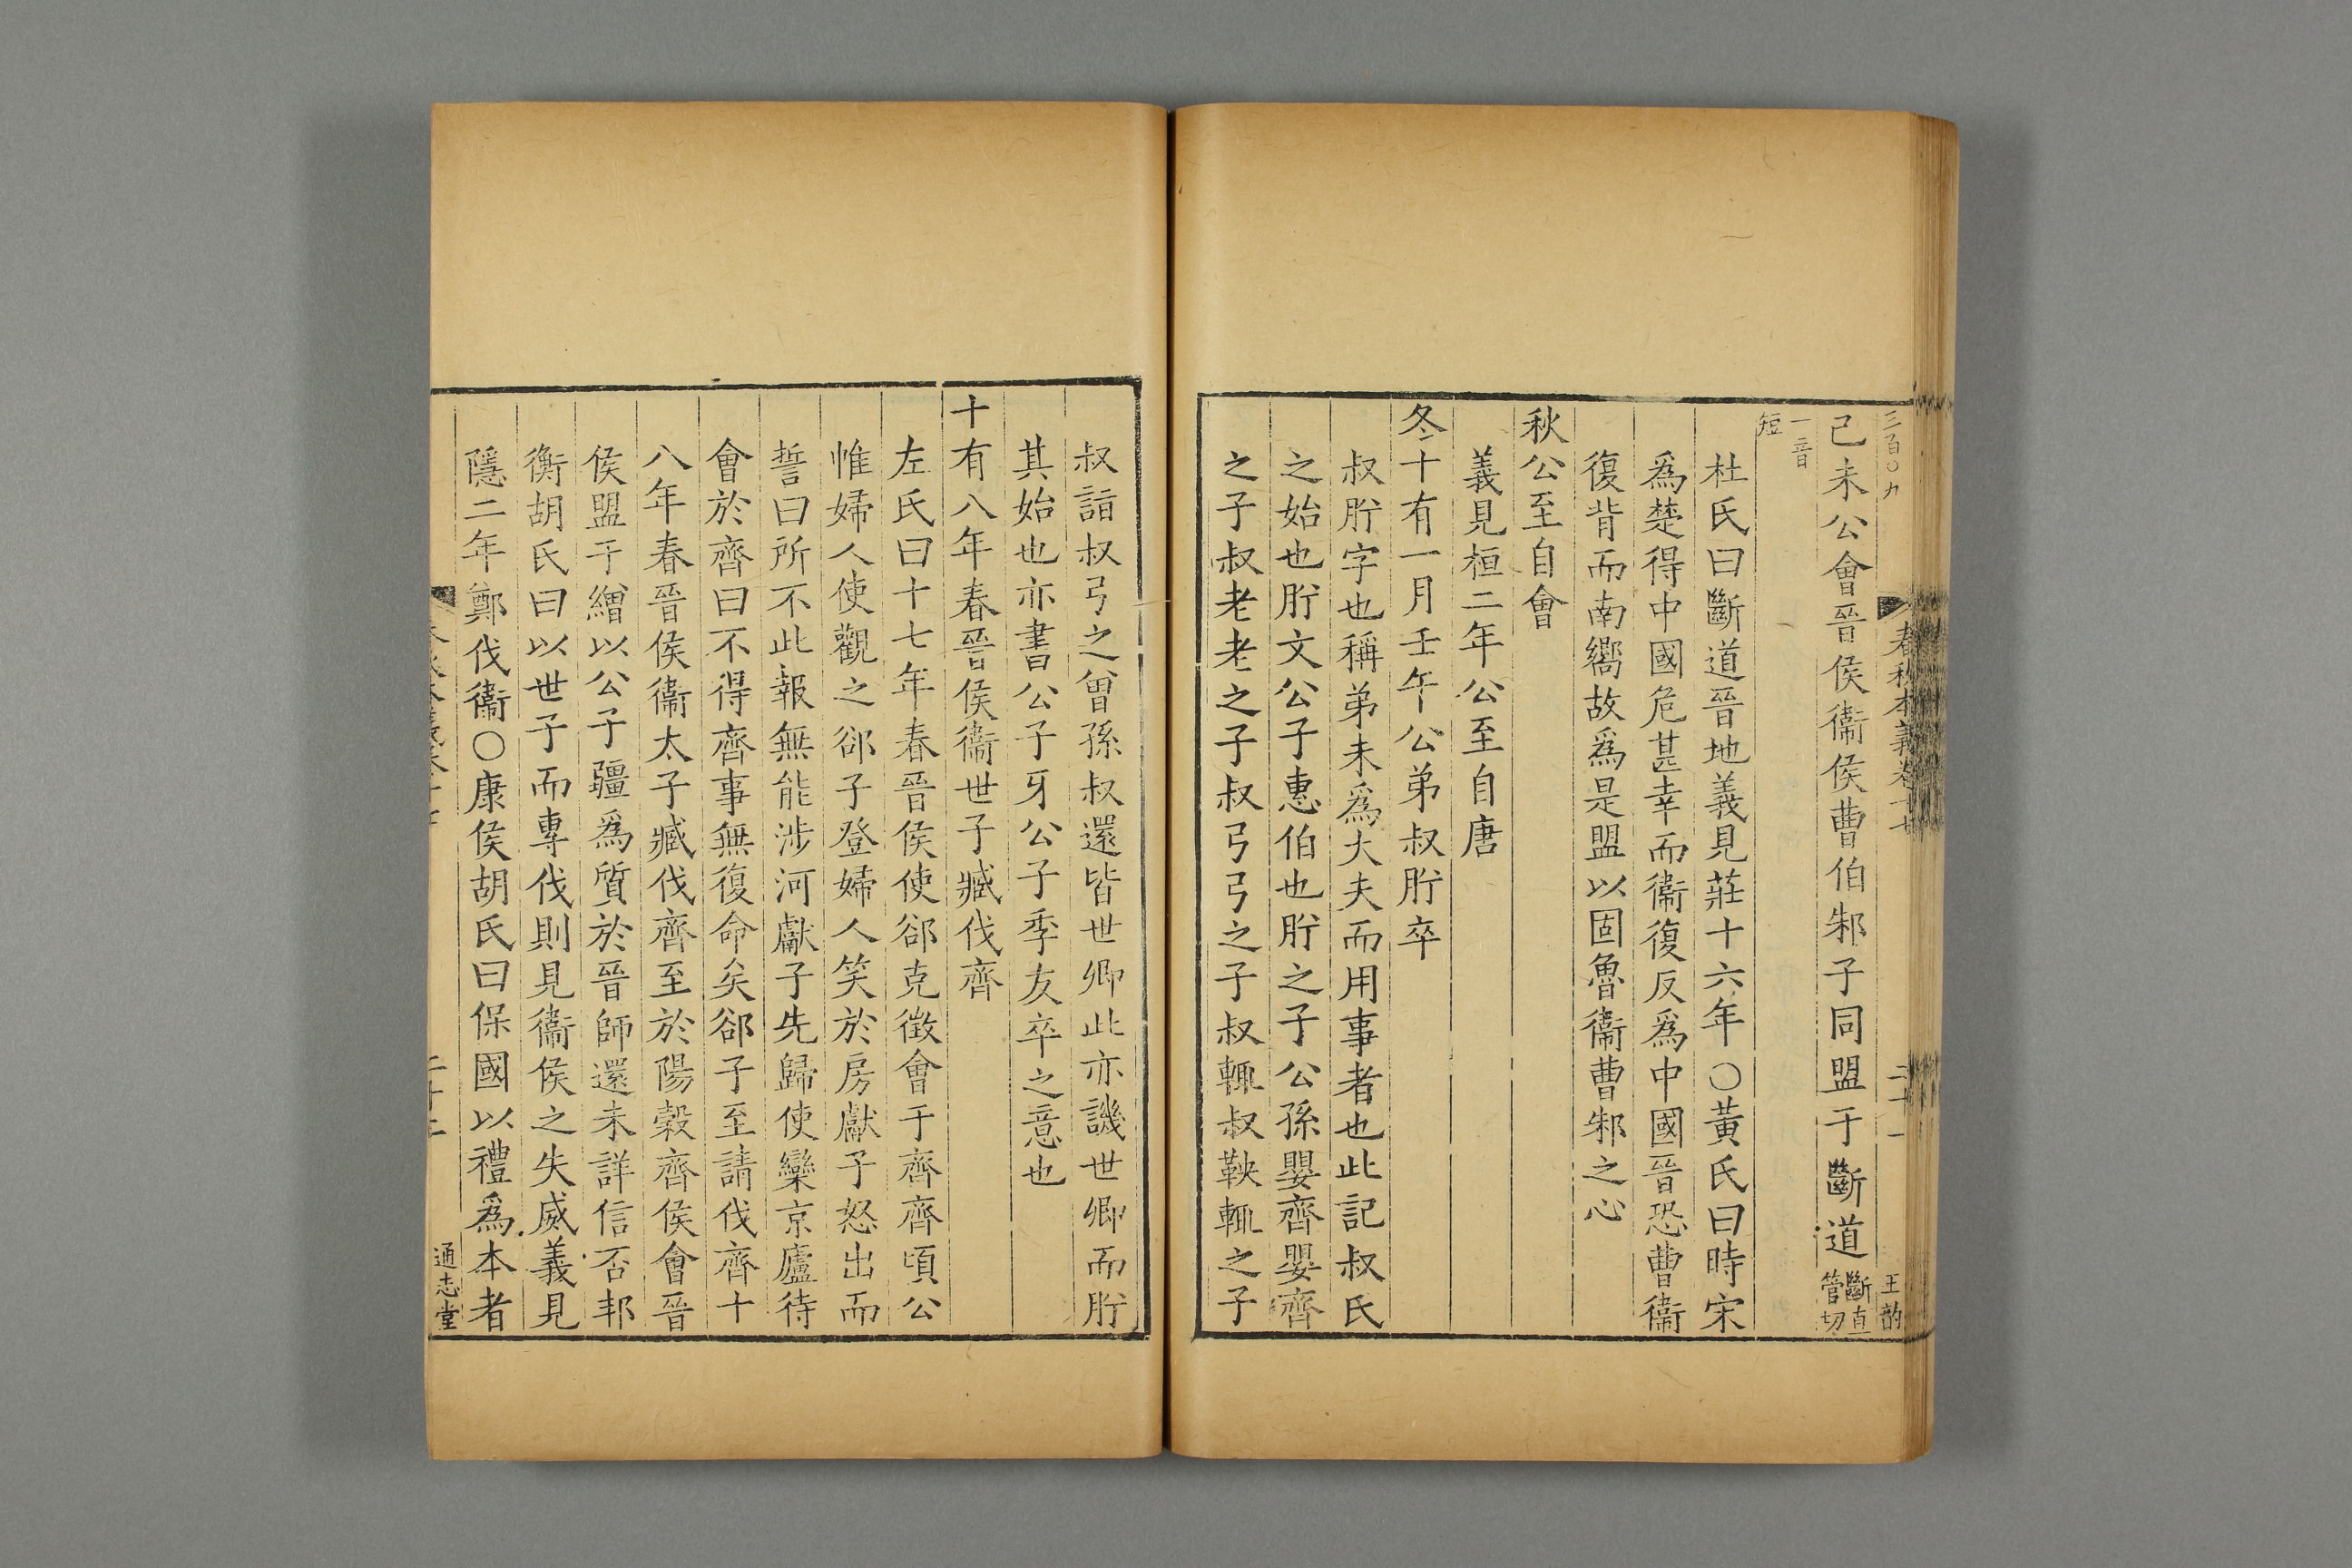 三百〇九
春秋本義卷十七
二十一
王尉
己未公會晉侯衞侯曹伯邾子同盟于斷道斷直管切
一音短
杜氏曰斷道晉地義見莊十六年〇黃氏曰時宋
爲楚得中國危甚幸而衞復反爲中國晉恐曹衞
復背而南嚮故爲是盟以固魯衞曹邾之心
秋公至自會
義見桓二年公至自唐
冬十有一月壬午公弟叔肸卒
叔肸字也稱弟未爲大夫而用事者也此記叔氏
之始也肸文公子惠伯也肸之子公孫嬰齊嬰齊
之子叔老老之子叔弓弓之子叔輒叔鞅輒之子
叔詣叔弓之曾孫叔還皆世卿此亦譏世卿而肸
其始也亦書公子牙公子季友卒之意也
十有八年春晉侯衞世子臧伐齊
左氏曰十七年春晉侯使郤克徵會于齊齊頃公
惟婦人使觀之郤子登婦人笑於房獻子怒出而
誓曰所不此報無能涉河獻子先歸使欒京廬待
會於齊曰不得齊事無復命矣郤子至請伐齊十
八年春晉侯衞太子臧伐齊至於陽榖齊侯會晉
侯盟于繒以公子疆爲質於晉師還未詳信否邦
衡胡氏曰以世子而專伐則見衞侯之失威義見
隱二年鄭伐衞〇康侯胡氏曰保國以禮爲本者
通志堂